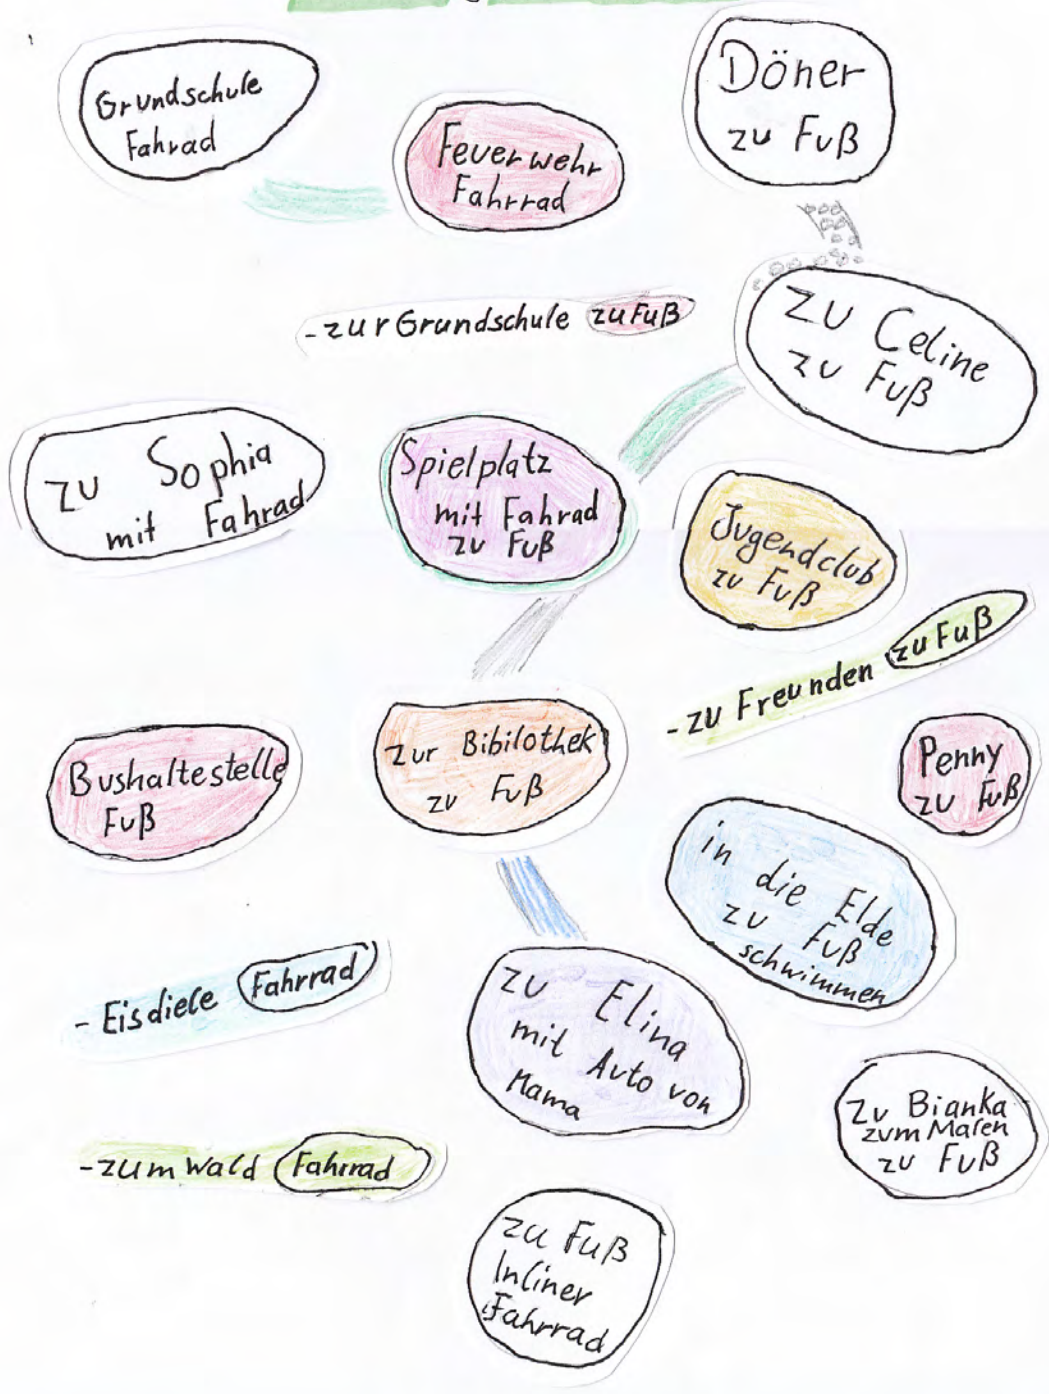 Grundschule
Fahrad
Feuerwehr
Fahrrad
Döner
zu Fuß
- zur Grundschule zu Fuß
zu Celine
zu Fuß
zu Sophia
mit Fahrad
Spielplatz
mit Fahrad
zu Fuß
Jugendclub
zu Fuß
- zu Freunden zu Fuß
Bushaltestelle
Fuß
zur Bibilothek
zu Fuß
Penny
zu Fuß
in die Elde
zu Fuß
schwimmen
- Eisdiele Fahrrad
zu Elina
mit Auto von
Mama
zu Bianka
zum Malen
zu Fuß
- zum Wald Fahrrad
zu Fuß
Inliner
Fahrrad